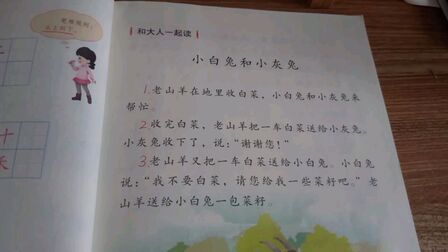 老师提问:
从上到下。
十
禾
和大人一起读
小白兔和小灰兔
1.老山羊在地里收白菜,小白兔和小灰兔来
帮忙。
2.收完白菜,老山羊把一车白菜送给小灰兔。
小灰兔收下了,说:“谢谢您!”
3.老山羊又把一车白菜送给小白兔。小白兔
说:“我不要白菜,请您给我一些菜籽吧。”老
山羊送给小白兔一包菜籽。